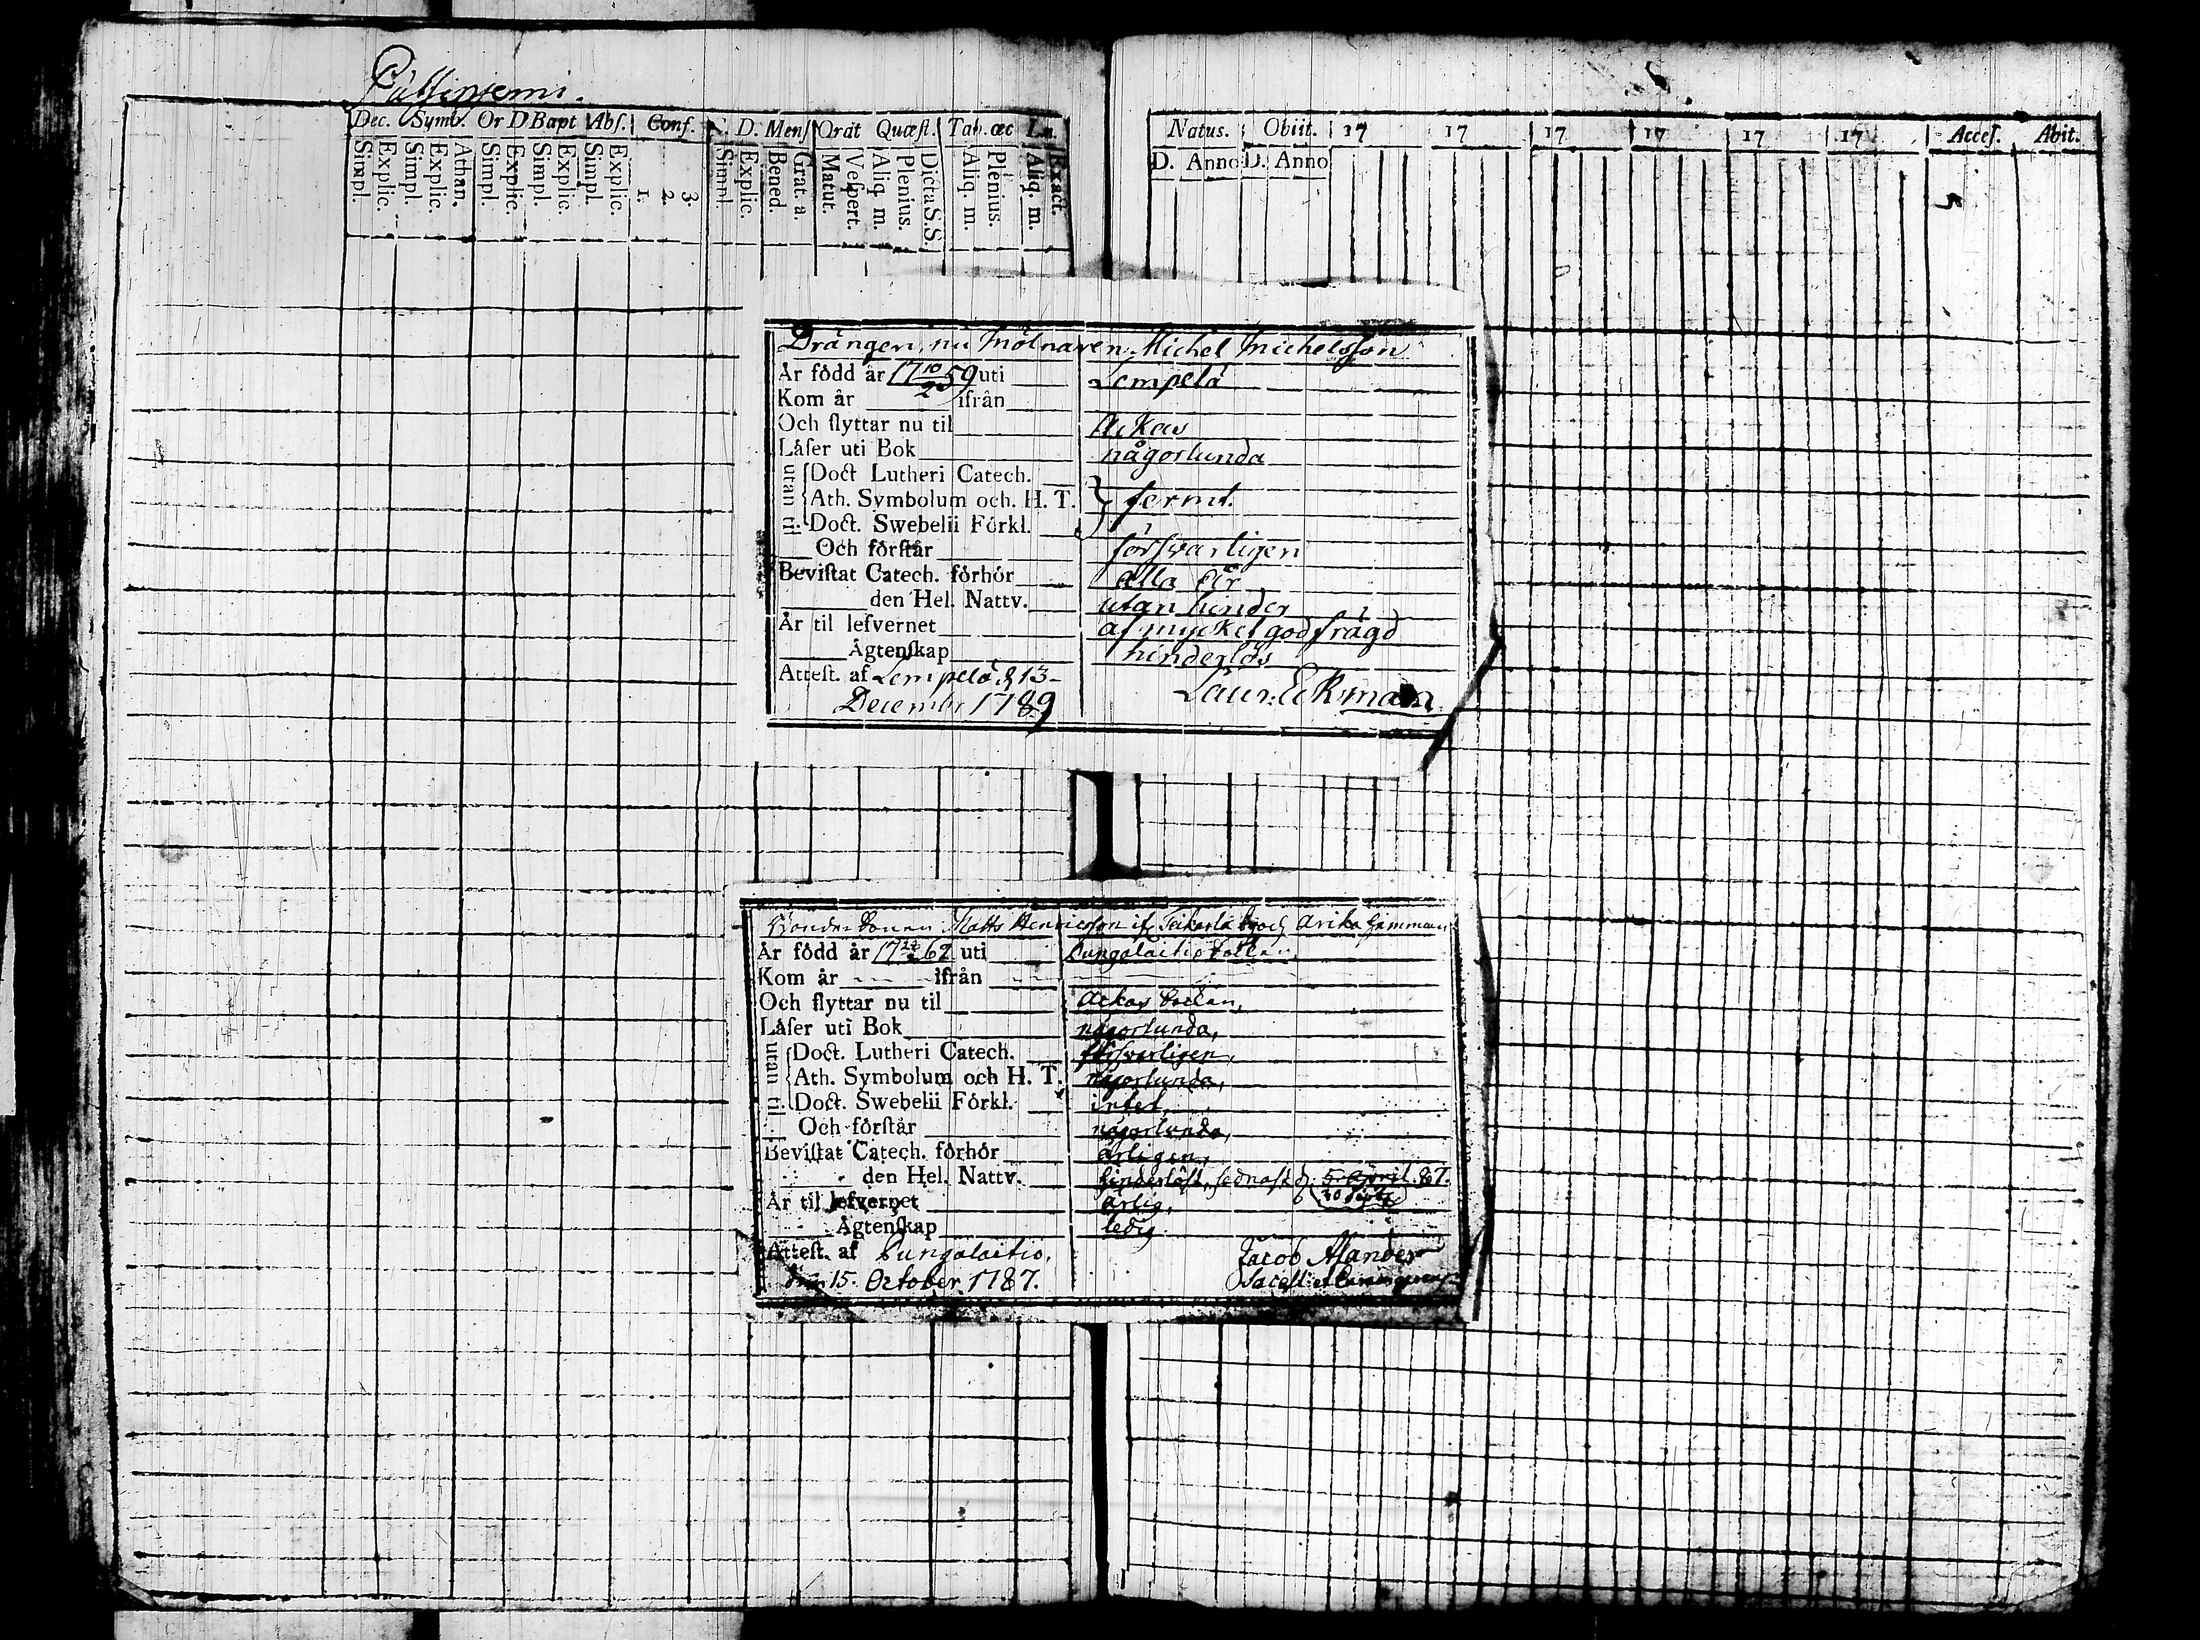 Dec. Symb. Or D Bapt Abs. Conf. C. D. Mens Orat Quæst. Tab. œc
Simpl. Explic. Simpl. Explic. Athan. Simpl. Explic. Simpl. Explic. Simpl. Explic. 1. 2. 3. Simpl. Explic. Bened. Grat. a. Matut. Vespert. Aliq. m. Plenius. Dicta S. S. Aliq. m. Plenius. Aliq. m. Exact.
Natus. Obiit. 17 17 17 17 17 17 Acces. Abit.
D. Anno D. Anno
Drängen, nu Mölnaren Michel Michelsson
Är född år 17 10/2 59 uti Lempelä
Kom år ifrån
Och flyttar nu til Ackas
Läser uti Bok någorlunda
utan til
Doct Lutheri Catech.
Ath. Symbolum och. H. T. } fermt.
Doct. Swebelii Förkl.
Och förstår försvarligen
Bevistat Catech. förhör alla År
den Hel. Nattv. utan hinder
Är til lefvernet af myckel god frägd
Ägtenskap hinderlös
Attest. af Lempelä d 13
Decembr 1789 Laur. Eckman
Matts Henricsson
Är född år 17 62 uti Pungalaitio
Kom år ifrån
Och flyttar nu til Ackas Socken,
Läser uti Bok någorlunda,
utan til
Doct. Lutheri Catech. försvarligen,
Ath. Symbolum och H. T. någorlunda,
Doct. Swebelii Förkl. intet,
Och förstår någorlunda,
Bevistat Catech. förhör årligen,
den Hel. Nattv. hinderlöst, sednast d. 5 April. 87.
30 Sept
Är til lefvernet ärlig,
Ägtenskap ledig
Attest. af Pungalaitio,
den 15. October 1787. Jacob Alander